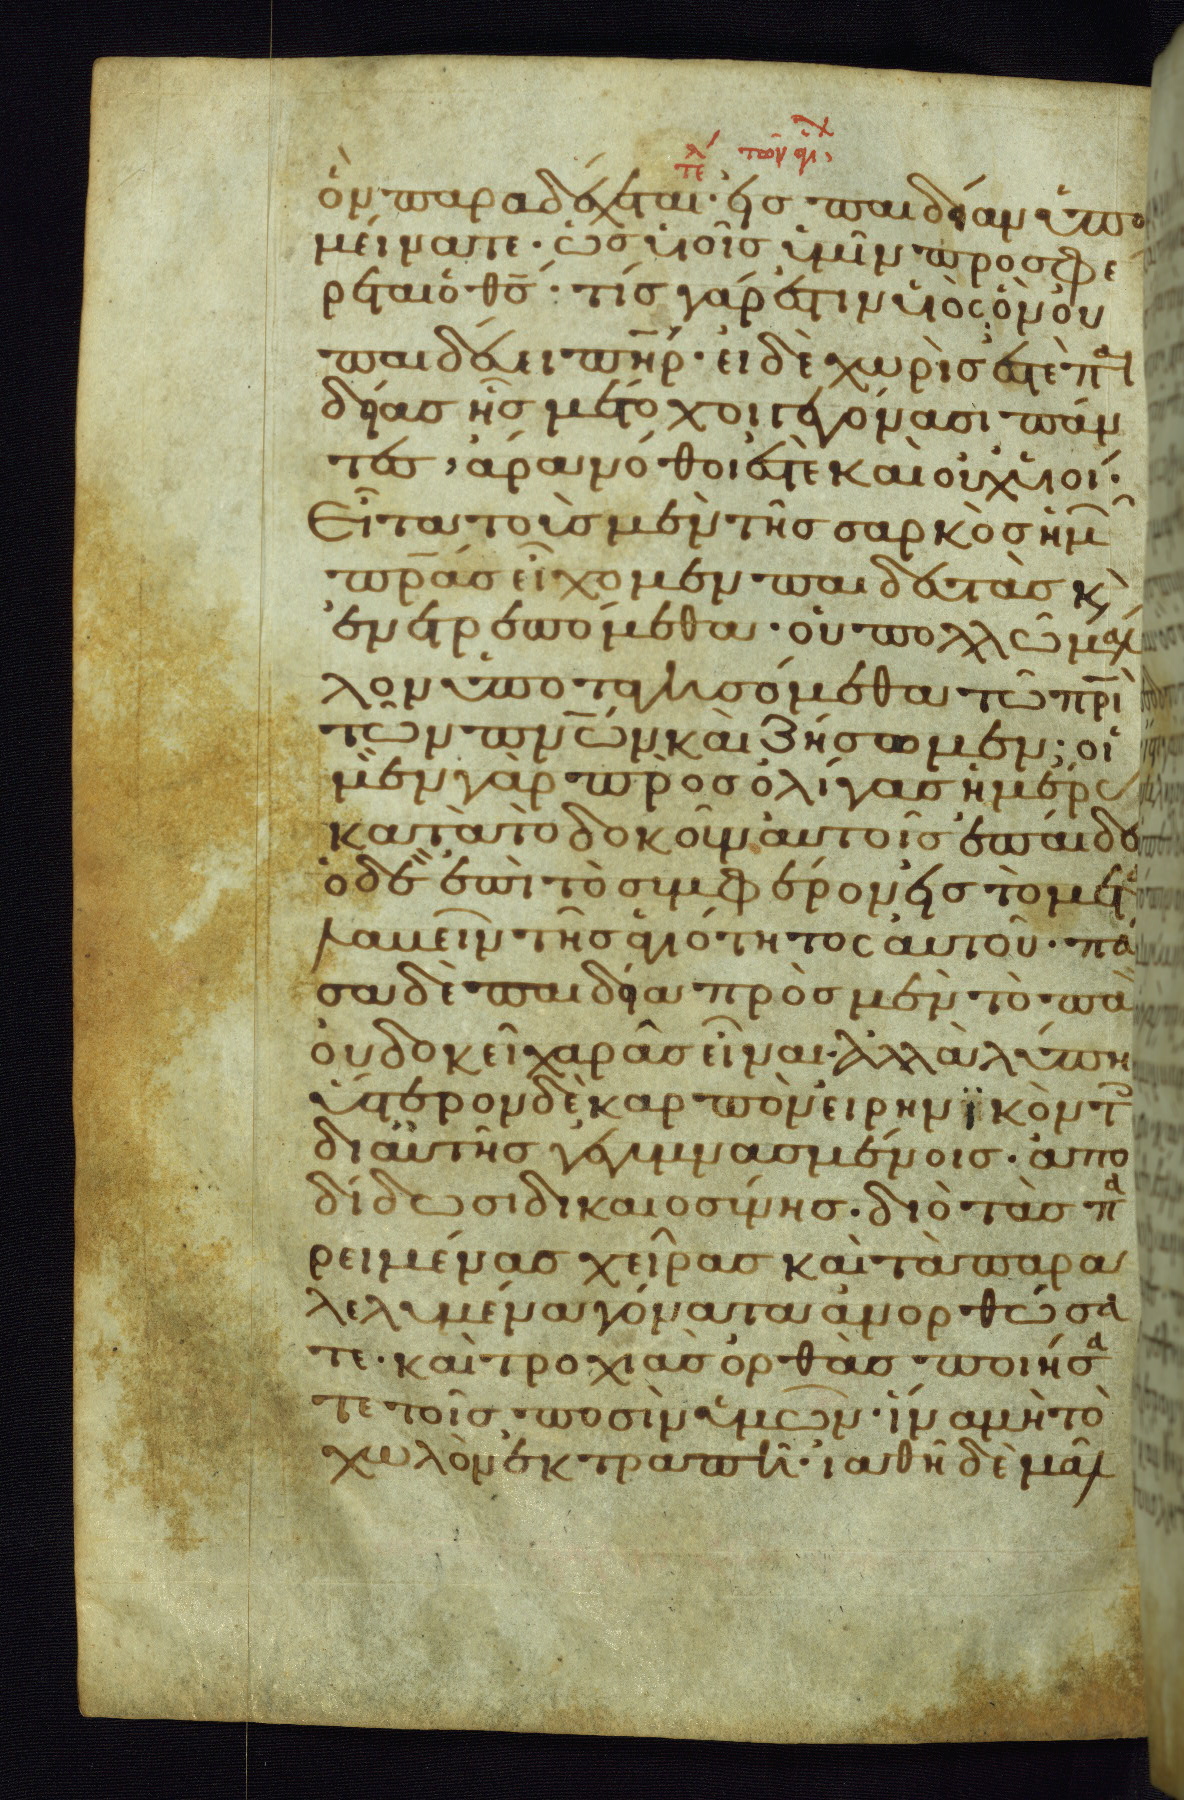 ὃν παραδέχεται· εἰς παιδείαν ὑπο
μείνατε· ὡς υἱοῖς ὑμῖν προσφέ
ρεται ὁ θς̅: τίς γάρ ἐστιν υἱὸς ὃν οὐ
παιδεύει πη̅ρ· εἰ δὲ χωρίς ἐστὲ πα
δείας ἧς μέτοχοι γεγόνασι πάν
τες, ἄρα νόθοι ἐστὲ καὶ οὐχ υἱοί·
Εἶτα τοὺς μὲν τῆς σαρκὸς ἡμῶ
πρ̅ας εἴχομεν παιδευτὰς κ̀
ἐνετρεπόμεθα· οὐ πολλῶ μᾶλ
λον ὑποταγησόμεθα τῶ πρ̅ι
τῶν πν̅ων καὶ ζήσομεν; οἱ
μὲν γὰρ πρὸς ὀλίγας ἡμέρας
κατὰ τὸ δοκοῦν αὐτοῖς ἐπαίδευ
ὁ δὲ ἐπὶ τὸ συμφέρον εἰς τὸ μετα
λαβεῖν τῆς ἁγιότητος αὐτοῦ· πᾶ
σα δὲ παιδεία πρὸς μὲν τὸ πα
οὐ δοκεῖ χαρᾶς εἶναι· ἀλλὰ λύπης
ὕστερον δὲ καρπὸν εἰρηνϊκὸν τοῖς
δι' αὐτῆς γεγυμνασμένοις· ἀπο
δίδωσι δικαιοσύνης· διὸ τὰς πα
ρειμένας χεῖρας καὶ τὰ παρα
λελυμένα γόνατα ἀνορθώσα
τε· καὶ τροχιὰς ὀρθὰς ποιήσα
τε τοῖς ποσὶν ὑμῶν· ἵνα μὴ τὸ
χωλὸν ἐκτραπῆ· ἰαθῆ δὲ μᾶλ